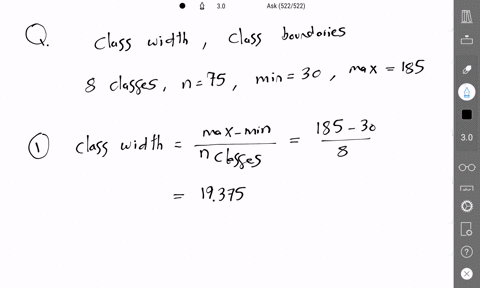 3.0 Ask (522/522)
Q. Class width, Class boundaries
8 classes, n=75, min=30, max=185
① Class width = max-min / n Classes = 185-30 / 8
= 19.375
3.0